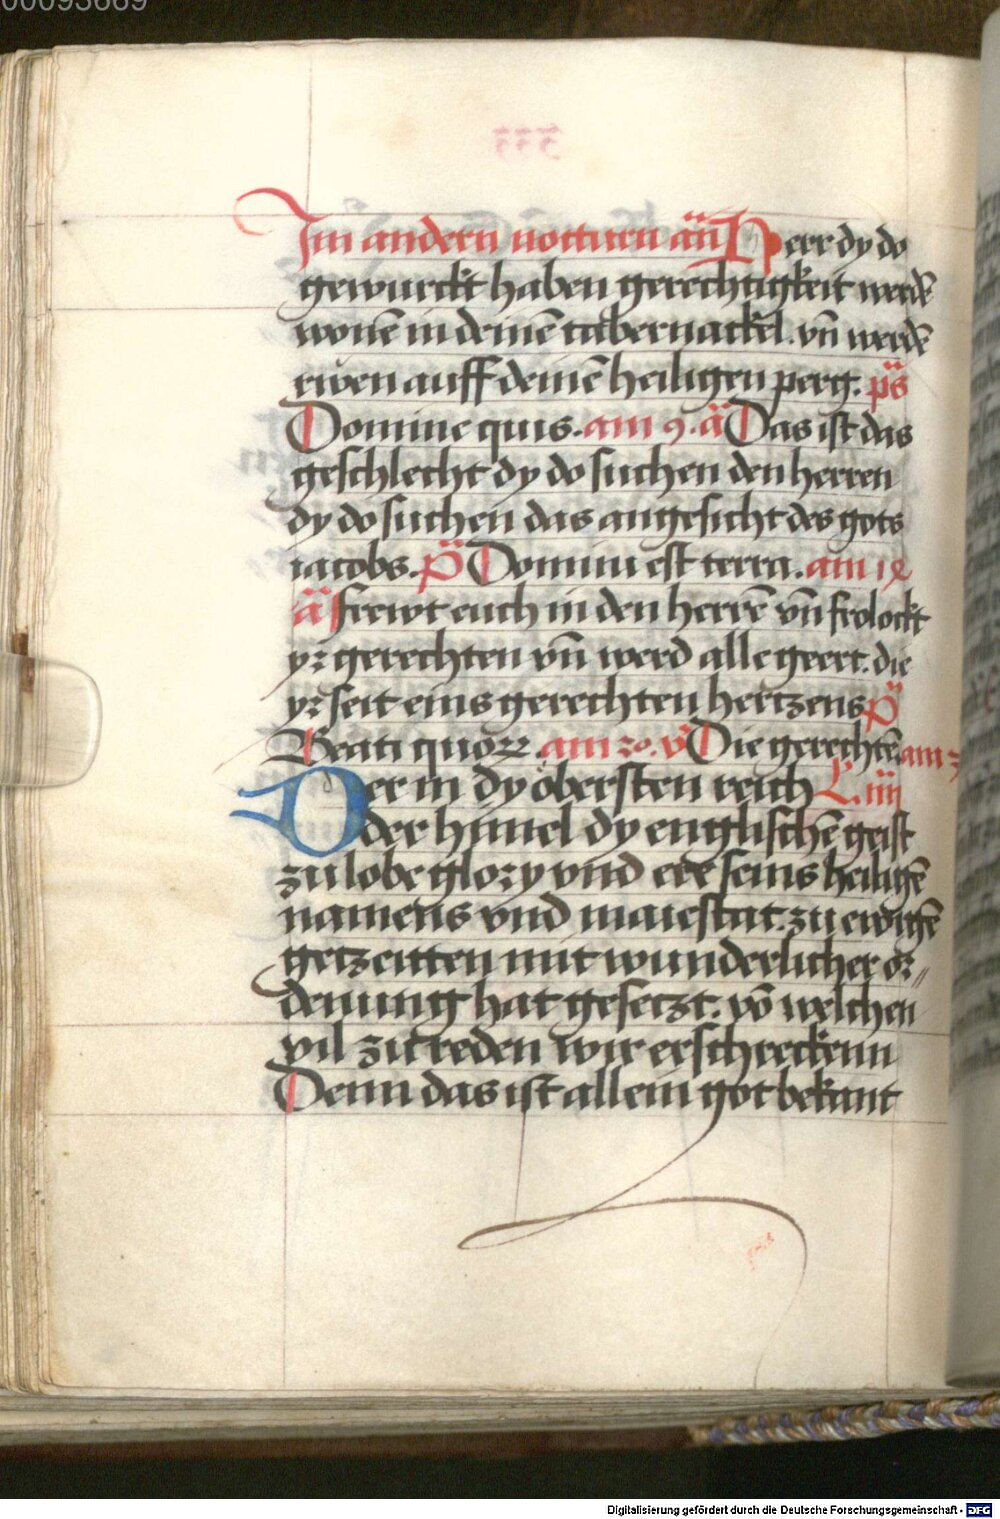 00093669
Im andern notturn añ Herr dy do
gewurckt haben gerechtigkeit werdē
wonē in deinē tabernackel. vn̄ werdē
rwen auff deinē heiligen perg. ps̄
Domine quis. am 9. ā Das ist das
geschlecht dy do suchen den herren
dy do suchen das angesicht des gots
iacobs. p̄s Domini est terra. am ix
ā frewt euch in den herrē vn̄ frolockt
yr gerechten vn̄ werd alle geert. die
yr seit eins gerechten hertzens p̄s
Beati quorum. am 20. v̄ Die gerechtē am
Der in dy obersten reich L. iiii
der himel dy englischē geist
zu lobe glory vnd ere seins heiligē
namens vnd maiestat. zu ewigē
getzeitten mit wunderlicher or//
denung hat gesetzt. vō welchen
vil zu reden wir erschreckenn
Denn das ist allein got bekant
Digitalisierung gefördert durch die Deutsche Forschungsgemeinschaft - DFG